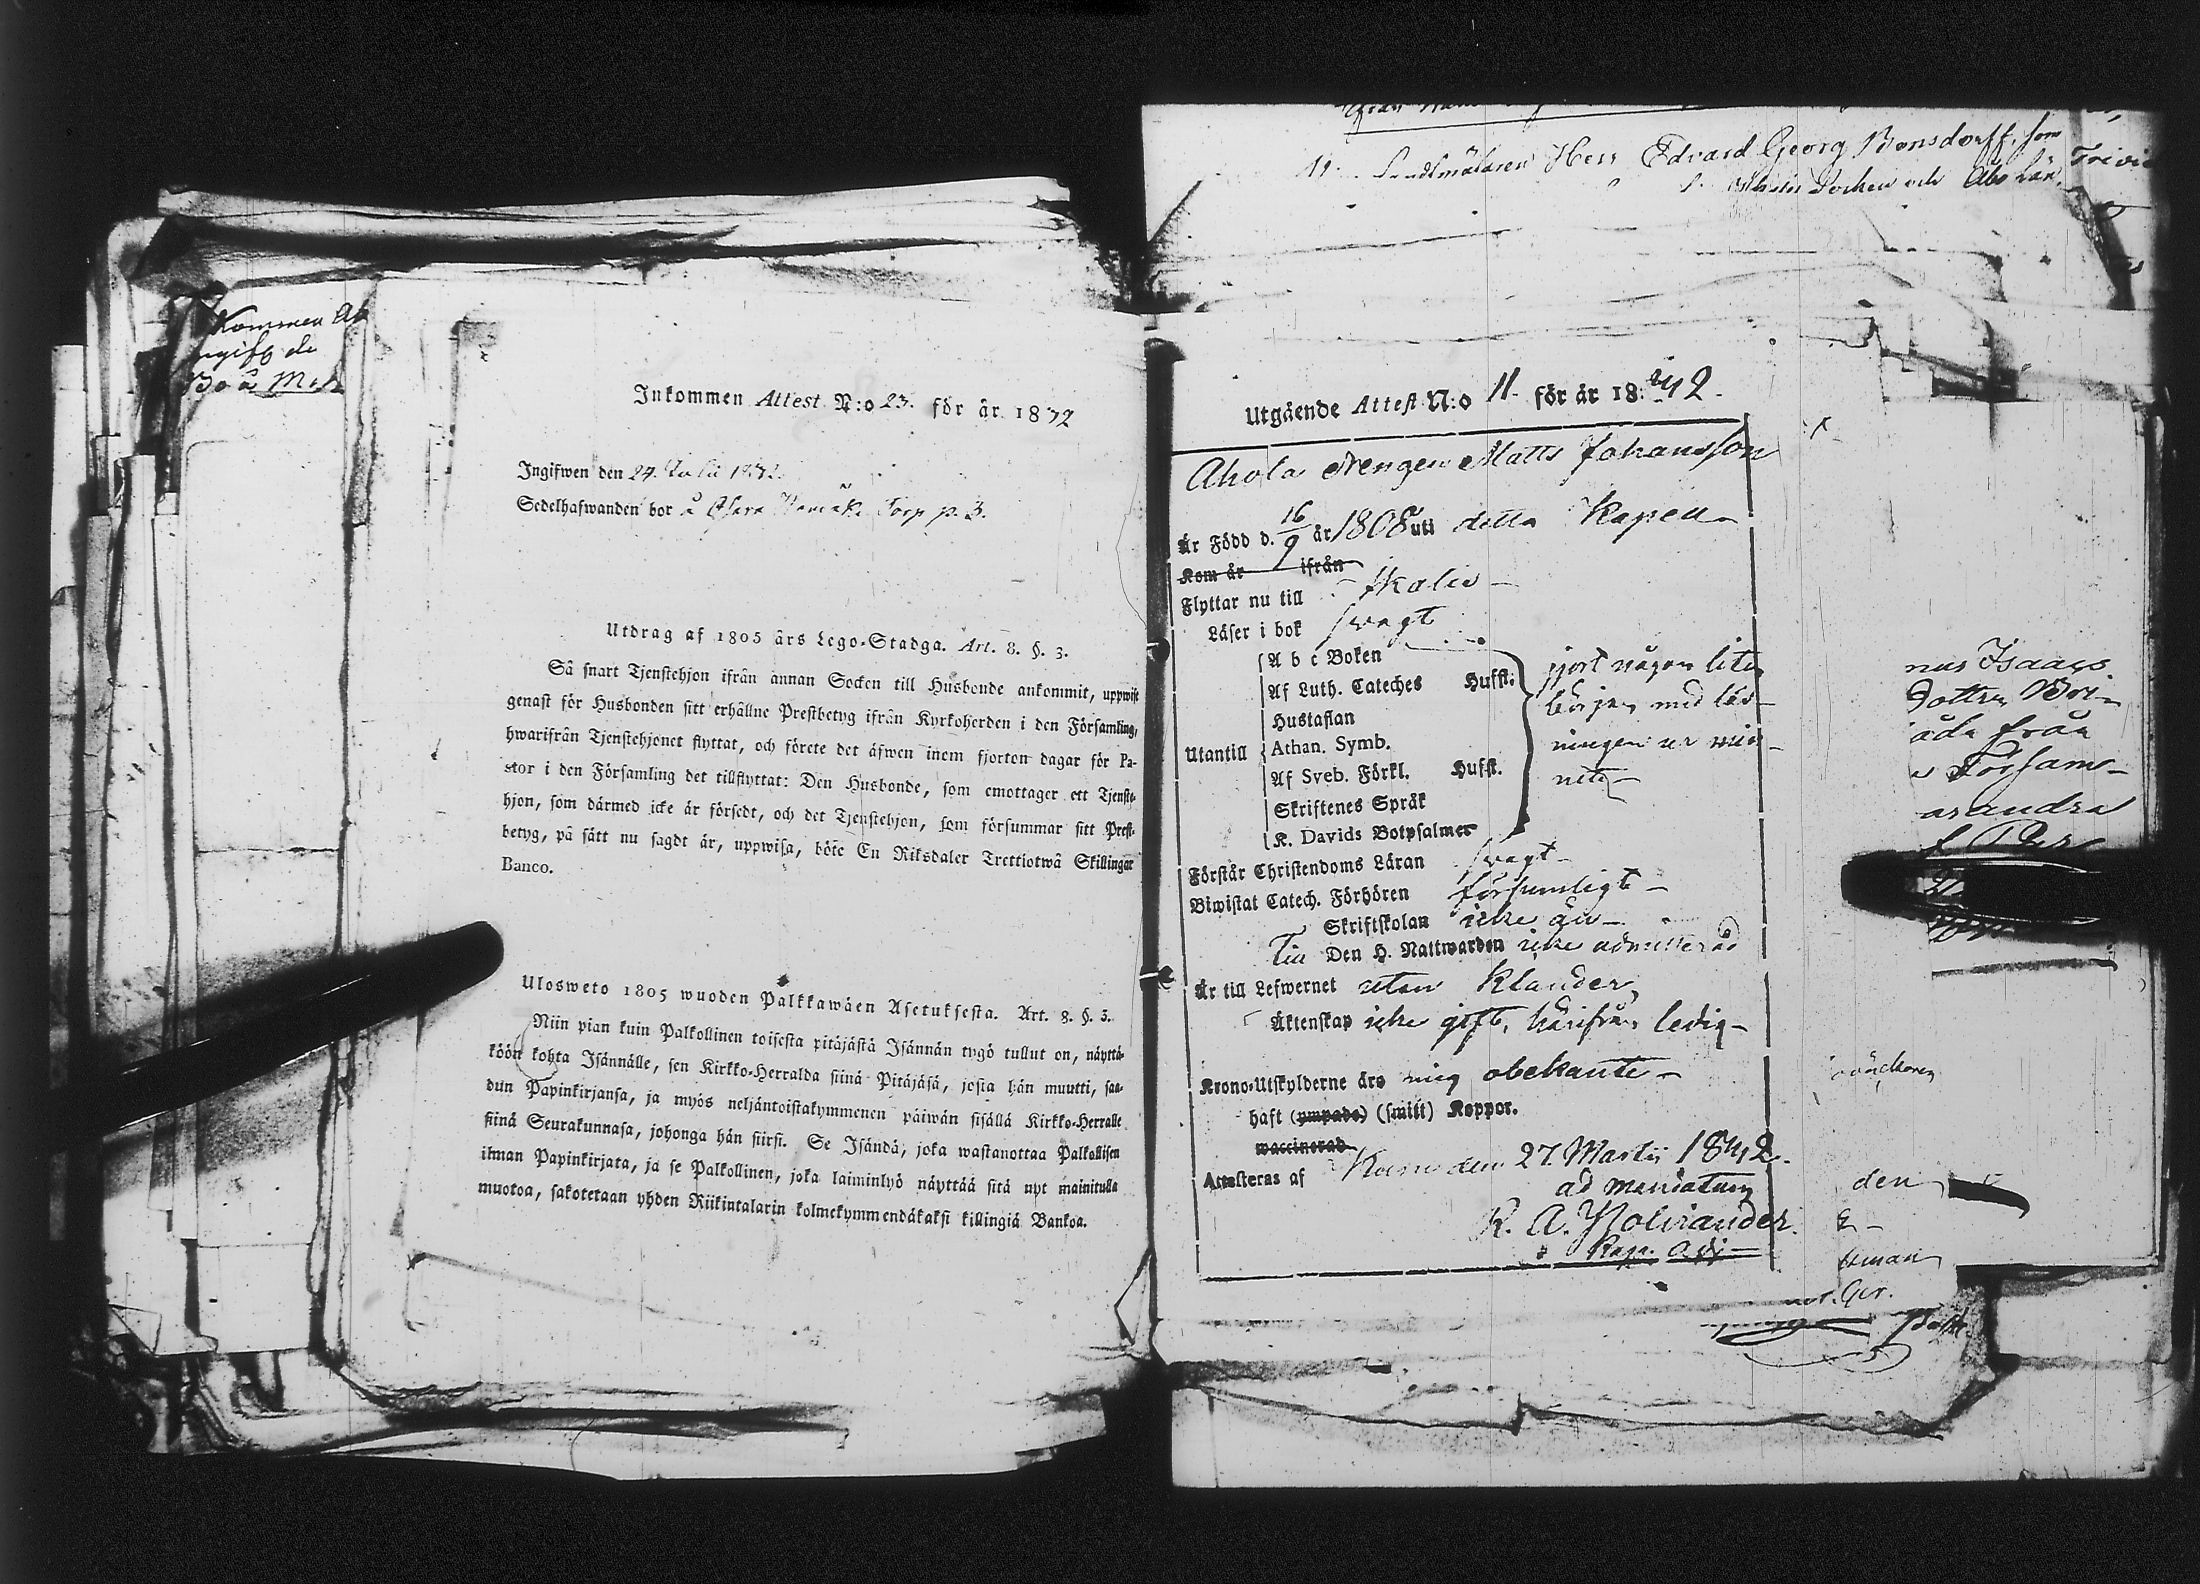 Kommen
Bo å
Inkommen Attest N:o 23. för år 1832
Ingifwen den 24. Juli 1832.
Sedelhafwanden bor å Torp p. 3.
Utdrag af 1805 års Lego-Stadga. Art. 8. §. 3.
Så snart Tjenstehjon ifrån annan Socken till Husbonde ankommit, uppwise
genast för Husbonden sitt erhållne Prestbetyg ifrån Kyrkoherden i den Församling,
hwarifrån Tjenstehjonet flyttat, och förete det äfwen inom fjorton dagar för Pa-
stor i den Församling det tillflyttat: Den Husbonde, som emottager ett Tjenste-
hjon, som därmed icke är försedt, och det Tjenstehjon, som försummar sitt Prest-
betyg, på sätt nu sagdt är, uppwisa, böte En Riksdaler Trettiotwå Skillingar
Banco.
Ulosweto 1805 wuoden Palkkawäen Asetuksesta. Art. 8. §. 3.
Niin pian kuin Palkollinen toisesta pitäjästä Isännän tygö tullut on, näyttä-
köön kohta Isännälle, sen Kirkko-Herralda siinä Pitäjäsä, josta hän muutti, saa-
dun Papinkirjansa, ja myös neljäntoistakymmenen päiwän sisällä Kirkko-Herralle
siinä Seurakunnasa, johonga hän siirsi. Se Isändä, joka wastanottaa Palkollisen
ilman Papinkirjata, ja se Palkollinen, joka laiminlyö näyttää sitä nyt mainitulla
muotoa, sakotetaan yhden Riikintalarin kolmekymmendäkaksi killingiä Bankoa.
11. Landtmätaren Herr Edvard Georg Bonsdorff, som
Socken och Åbo Län,
Utgående Attest N:o 11. för år 1842.
Ahola Drengen Matts Johansson
Är Född d. 16/9 år 1808 uti detta Kapell
Kom år ifrån
Flyttar nu till
Läser i bok swagt
A b c Boken
Af Luth. Cateches Husfl.
Hustaflan
Utantill Athan. Symb.
Af Sveb. Förkl. Husfl.
Skriftenes Språk
K. Davids Botpsalmer
gjort någon liten
början med läs-
ningen ur min-
net
Förstår Christendoms Läran swagt
Biwistat Catech. Förhören försumligt
Skriftskolan icke än
Till Den H. Nattwarden icke admitterad
Är till Lefwernet utan klander,
Äktenskap icke gift, härifrån ledig
Krono-Utskylderne äro mig obekante
haft (ympade) (smitt) Koppor.
waccinerad
Attesteras af den 27 Martii 1842.
ad mandatum
K. A. Polviander.
Kap. Adj.
Isaacs
Dottren
åda från
Försam-
den